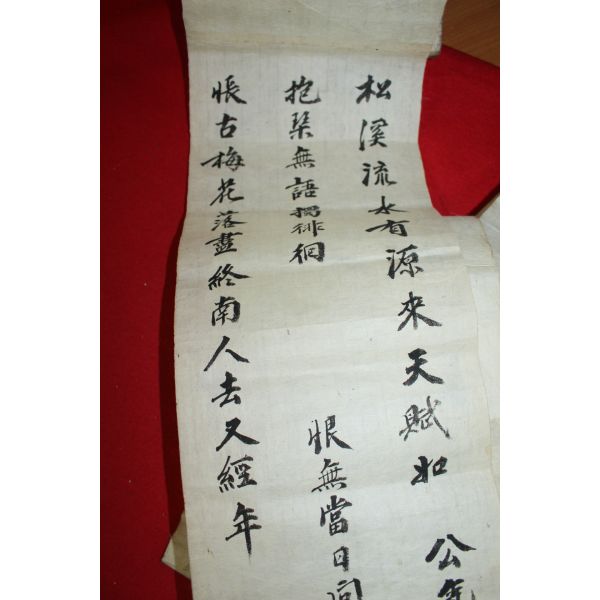 松溪流水有源來天賦如 公
抱琴無語獨徘徊 恨無當日
悵古梅花落盡終南人去又經年